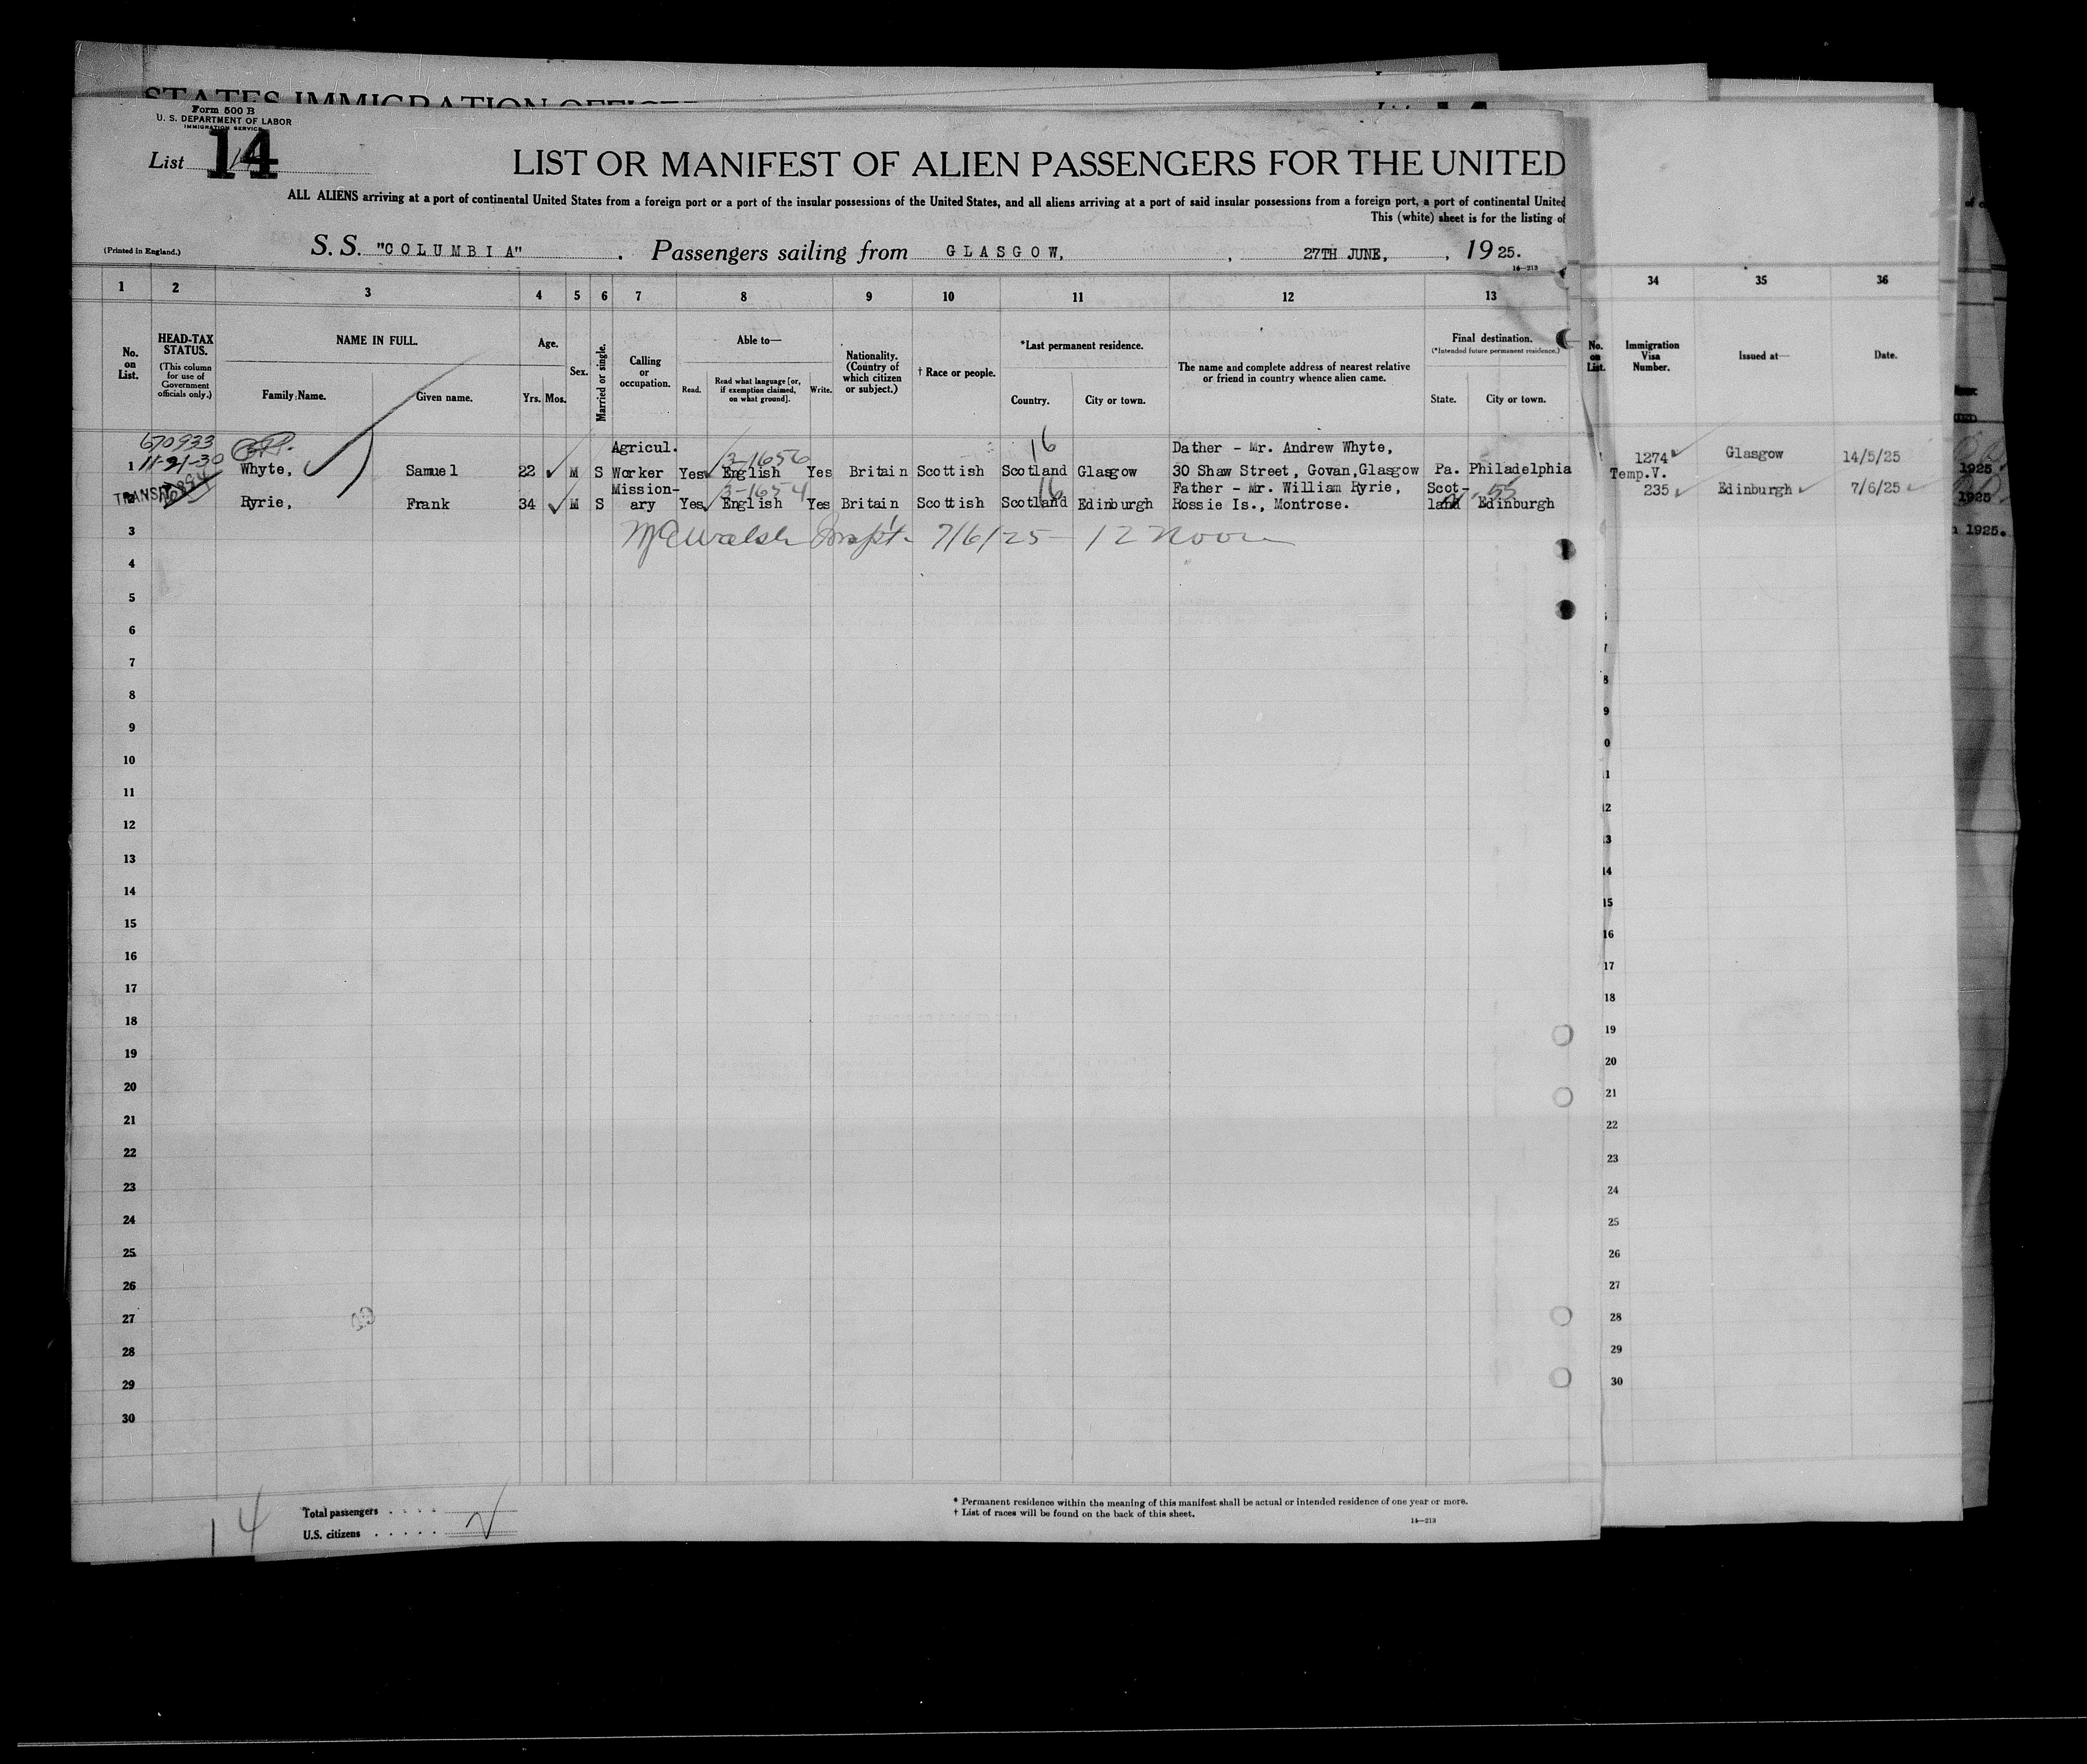 STATES IMMIGRATION
Form 500 B
U. S. DEPARTMENT OF LABOR
IMMIGRATION SERVICE
List 14
LIST OR MANIFEST OF ALIEN PASSENGERS FOR THE UNITED
ALL ALIENS arriving at a port of continental United States from a foreign port or a port of the insular possessions of the United States, and all aliens arriving at a port of said insular possessions from a foreign port, a port of continental United
This (white) sheet is for the listing of
(Printed in England.)
S. S. "COLUMBIA" . Passengers sailing from GLASGOW, , 27TH JUNE, , 1925.
14—213
1 2 3 4 5 6 7 8 9 10 11 12 13 34 35 36
No. on List.
HEAD-TAX STATUS.
(This column for use of Government officials only.)
NAME IN FULL.
Family Name.
Given name.
Age.
Yrs. Mos.
Sex.
Married or single.
Calling or occupation.
Able to—
Read.
Read what language [or, if exemption claimed, on what ground].
Write.
Nationality. (Country of which citizen or subject.)
† Race or people.
*Last permanent residence.
Country.
City or town.
The name and complete address of nearest relative or friend in country whence alien came.
Final destination.
(*Intended future permanent residence.)
State.
City or town.
No. on List.
Immigration Visa Number.
Issued at—
Date.
670933
11-21-30
3-1656
16
Agricul. Dather - Mr. Andrew Whyte,
1 Whyte, Samuel 22 M S Worker Yes English Yes Britain Scottish Scotland Glasgow 30 Shaw Street, Govan, Glasgow Pa. Philadelphia 1274 Glasgow 14/5/25
TRANSIT
3-1654
16
55
Mission- Father - Mr. William Ryrie, Scot- Temp.V.
2 Ryrie, Frank 34 M S ary Yes English Yes Britain Scottish Scotland Edinburgh Rossie Is., Montrose. land Edinburgh 235 Edinburgh 7/6/25
1925
1925
1925.
3 Walsh Inspt. 7/6/25 - 12 Noon
4
5
6
7
8 8
9 9
10 0
11 1
12 12
13 13
14 14
15 15
16 16
17 17
18 18
19 19
20 20
21 21
22 22
23 23
24 24
25 25
26 26
27 27
28 28
29 29
30 30
14
Total passengers . . . .
U.S. citizens . . . . .
* Permanent residence within the meaning of this manifest shall be actual or intended residence of one year or more.
† List of races will be found on the back of this sheet.
14—213